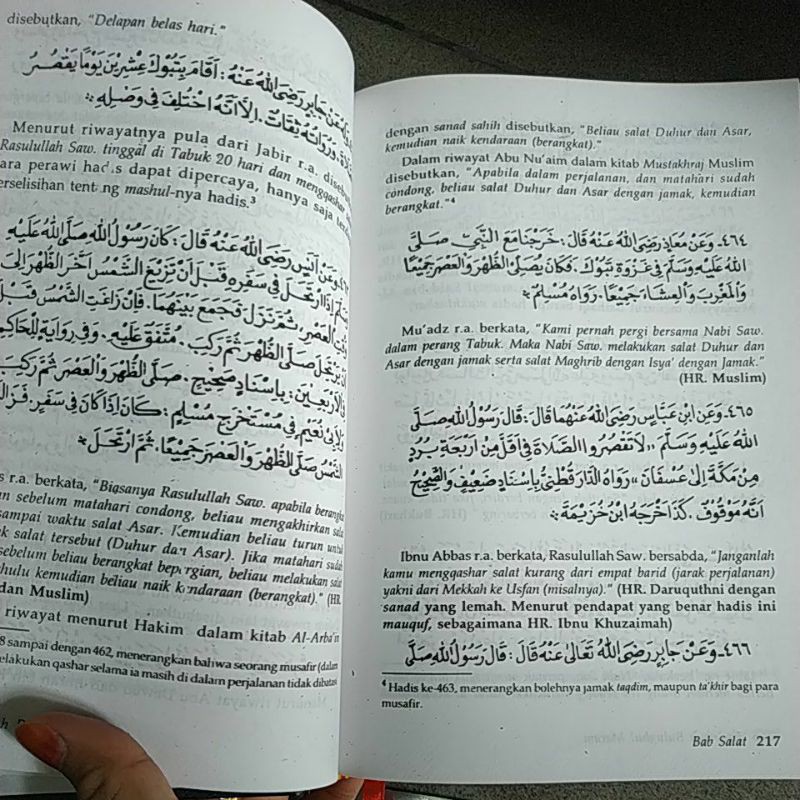 disebutkan, "Delapan belas hari."
عَنْ جَابِرٍ رَضِىَ اللهُ عَنْهُ: أَقَامَ بِتَبُوْكَ عِشْرِيْنَ يَوْمًا يَقْصُرُ
وَرُوَاتُهُ ثِقَاتٌ. اِلَّا أَنَّهُ اخْتُلِفَ فِى وَصْلِهِ
Menurut riwayatnya pula dari Jabir r.a.
Rasulullah Saw. tinggal di Tabuk 20 hari dan mengqashar
ara perawi hadis dapat dipercaya, hanya saja
erselisihan tentang mashul-nya hadis.³
وَعَنْ أَنَسٍ رَضِىَ اللهُ عَنْهُ قَالَ: كَانَ رَسُوْلُ اللهِ صَلَّى اللهُ عَلَيْهِ
إِذَا ارْتَحَلَ فِى سَفَرِهِ قَبْلَ أَنْ تَزِيْغَ الشَّمْسُ أَخَّرَ الظُّهْرَ إِلَى
الْعَصْرِ، ثُمَّ نَزَلَ فَجَمَعَ بَيْنَهُمَا. فَإِنْ زَاغَتِ الشَّمْسُ قَبْلَ
أَنْ يَرْتَحِلَ صَلَّى الظُّهْرَ ثُمَّ رَكِبَ. مُتَّفَقٌ عَلَيْهِ. وَفِى رِوَايَةٍ لِلْحَاكِمِ
فِى الْأَرْبَعِيْنَ: بِإِسْنَادٍ صَحِيْحٍ: صَلَّى الظُّهْرَ وَالْعَصْرَ ثُمَّ رَكِبَ
وَلِأَبِى نُعَيْمٍ فِى مُسْتَخْرَجِ مُسْلِمٍ: كَانَ إِذَا كَانَ فِى سَفَرٍ، فَزَالَتِ
الشَّمْسُ صَلَّى الظُّهْرَ وَالْعَصْرَ جَمِيْعًا. ثُمَّ ارْتَحَلَ
s r.a. berkata, "Biasanya Rasulullah Saw. apabila berangkat
an sebelum matahari condong, beliau mengakhirkan salat
sampai waktu salat Asar. Kemudian beliau turun untuk
k salat tersebut (Duhur dan Asar). Jika matahari sudah
sebelum beliau berangkat bepergian, beliau melakukan salat
hulu kemudian beliau naik kendaraan (berangkat)." (HR.
dan Muslim)
riwayat menurut Hakim dalam kitab Al-Arba'in
8 sampai dengan 462, menerangkan bahwa seorang musafir (dalam
elakukan qashar selama ia masih di dalam perjalanan tidak dibatasi
dengan sanad sahih disebutkan, "Beliau salat Duhur dan Asar,
kemudian naik kendaraan (berangkat)."
Dalam riwayat Abu Nu'aim dalam kitab Mustakhraj Muslim
disebutkan, "Apabila dalam perjalanan, dan matahari sudah
condong, beliau salat Duhur dan Asar dengan jamak, kemudian
berangkat."⁴
٤٦٤. وَعَنْ مُعَاذٍ رَضِىَ اللهُ عَنْهُ قَالَ: خَرَجْنَا مَعَ النَّبِيِّ صَلَّى
اللهُ عَلَيْهِ وَسَلَّمَ فِى غَزْوَةِ تَبُوْكَ. فَكَانَ يُصَلِّى الظُّهْرَ وَالْعَصْرَ جَمِيْعًا
وَالْمَغْرِبَ وَالْعِشَاءَ جَمِيْعًا. رَوَاهُ مُسْلِمٌ.
Mu'adz r.a. berkata, "Kami pernah pergi bersama Nabi Saw.
dalam perang Tabuk. Maka Nabi Saw. melakukan salat Duhur dan
Asar dengan jamak serta salat Maghrib dengan Isya' dengan Jamak."
(HR. Muslim)
٤٦٥. وَعَنِ ابْنِ عَبَّاسٍ رَضِىَ اللهُ عَنْهُمَا قَالَ: قَالَ رَسُوْلُ اللهِ صَلَّى
اللهُ عَلَيْهِ وَسَلَّمَ „لَا تَقْصُرُوا الصَّلَاةَ فِى أَقَلَّ مِنْ أَرْبَعَةِ بُرُدٍ
مِنْ مَكَّةَ إِلَى عُسْفَانَ" رَوَاهُ الدَّارَقُطْنِىُّ بِإِسْنَادٍ ضَعِيْفٍ وَالصَّحِيْحُ
أَنَّهُ مَوْقُوْفٌ. كَذَا أَخْرَجَهُ ابْنُ خُزَيْمَةَ
Ibnu Abbas r.a. berkata, Rasulullah Saw. bersabda, "Janganlah
kamu mengqashar salat kurang dari empat barid (jarak perjalanan)
yakni dari Mekkah ke Usfan (misalnya)." (HR. Daruquthni dengan
sanad yang lemah. Menurut pendapat yang benar hadis ini
mauquf, sebagaimana HR. Ibnu Khuzaimah)
٤٦٦. وَعَنْ جَابِرٍ رَضِىَ اللهُ تَعَالَى عَنْهُ قَالَ: قَالَ رَسُوْلُ اللهِ صَلَّى
⁴ Hadis ke-463, menerangkan bolehnya jamak taqdim, maupun ta'khir bagi para
musafir.
Bab Salat 217